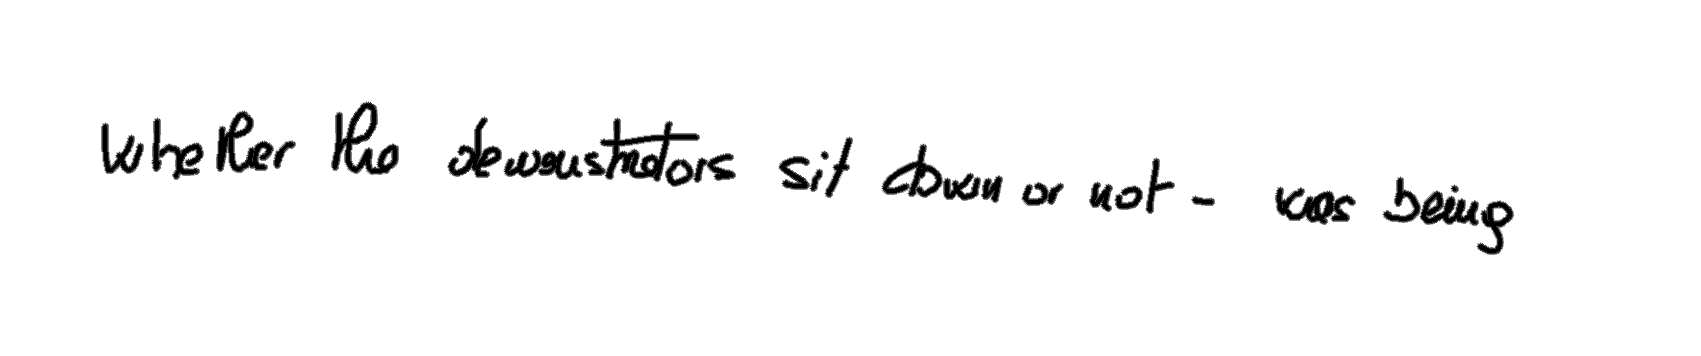 whether the demonstrators sit down or not - was being